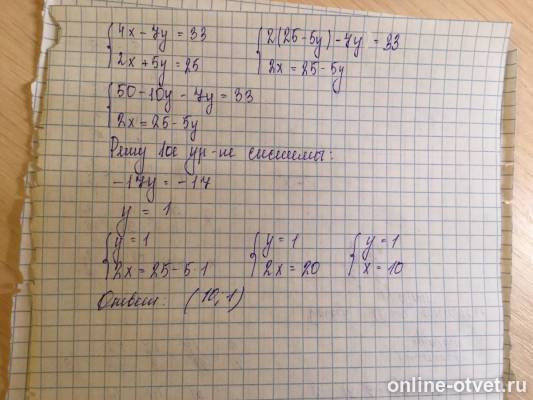 {4x - 7y = 33 {2(25-5y) - 7y = 33
{2x + 5y = 25 {2x = 25 - 5y
{50 - 10y - 7y = 33
{2x = 25 - 5y
Решу 1ое ур-ие системы:
-17y = -17
y = 1
{y = 1 {y = 1 {y = 1
{2x = 25 - 5·1 {2x = 20 {x = 10
Ответ: (10,1)
online-otvet.ru